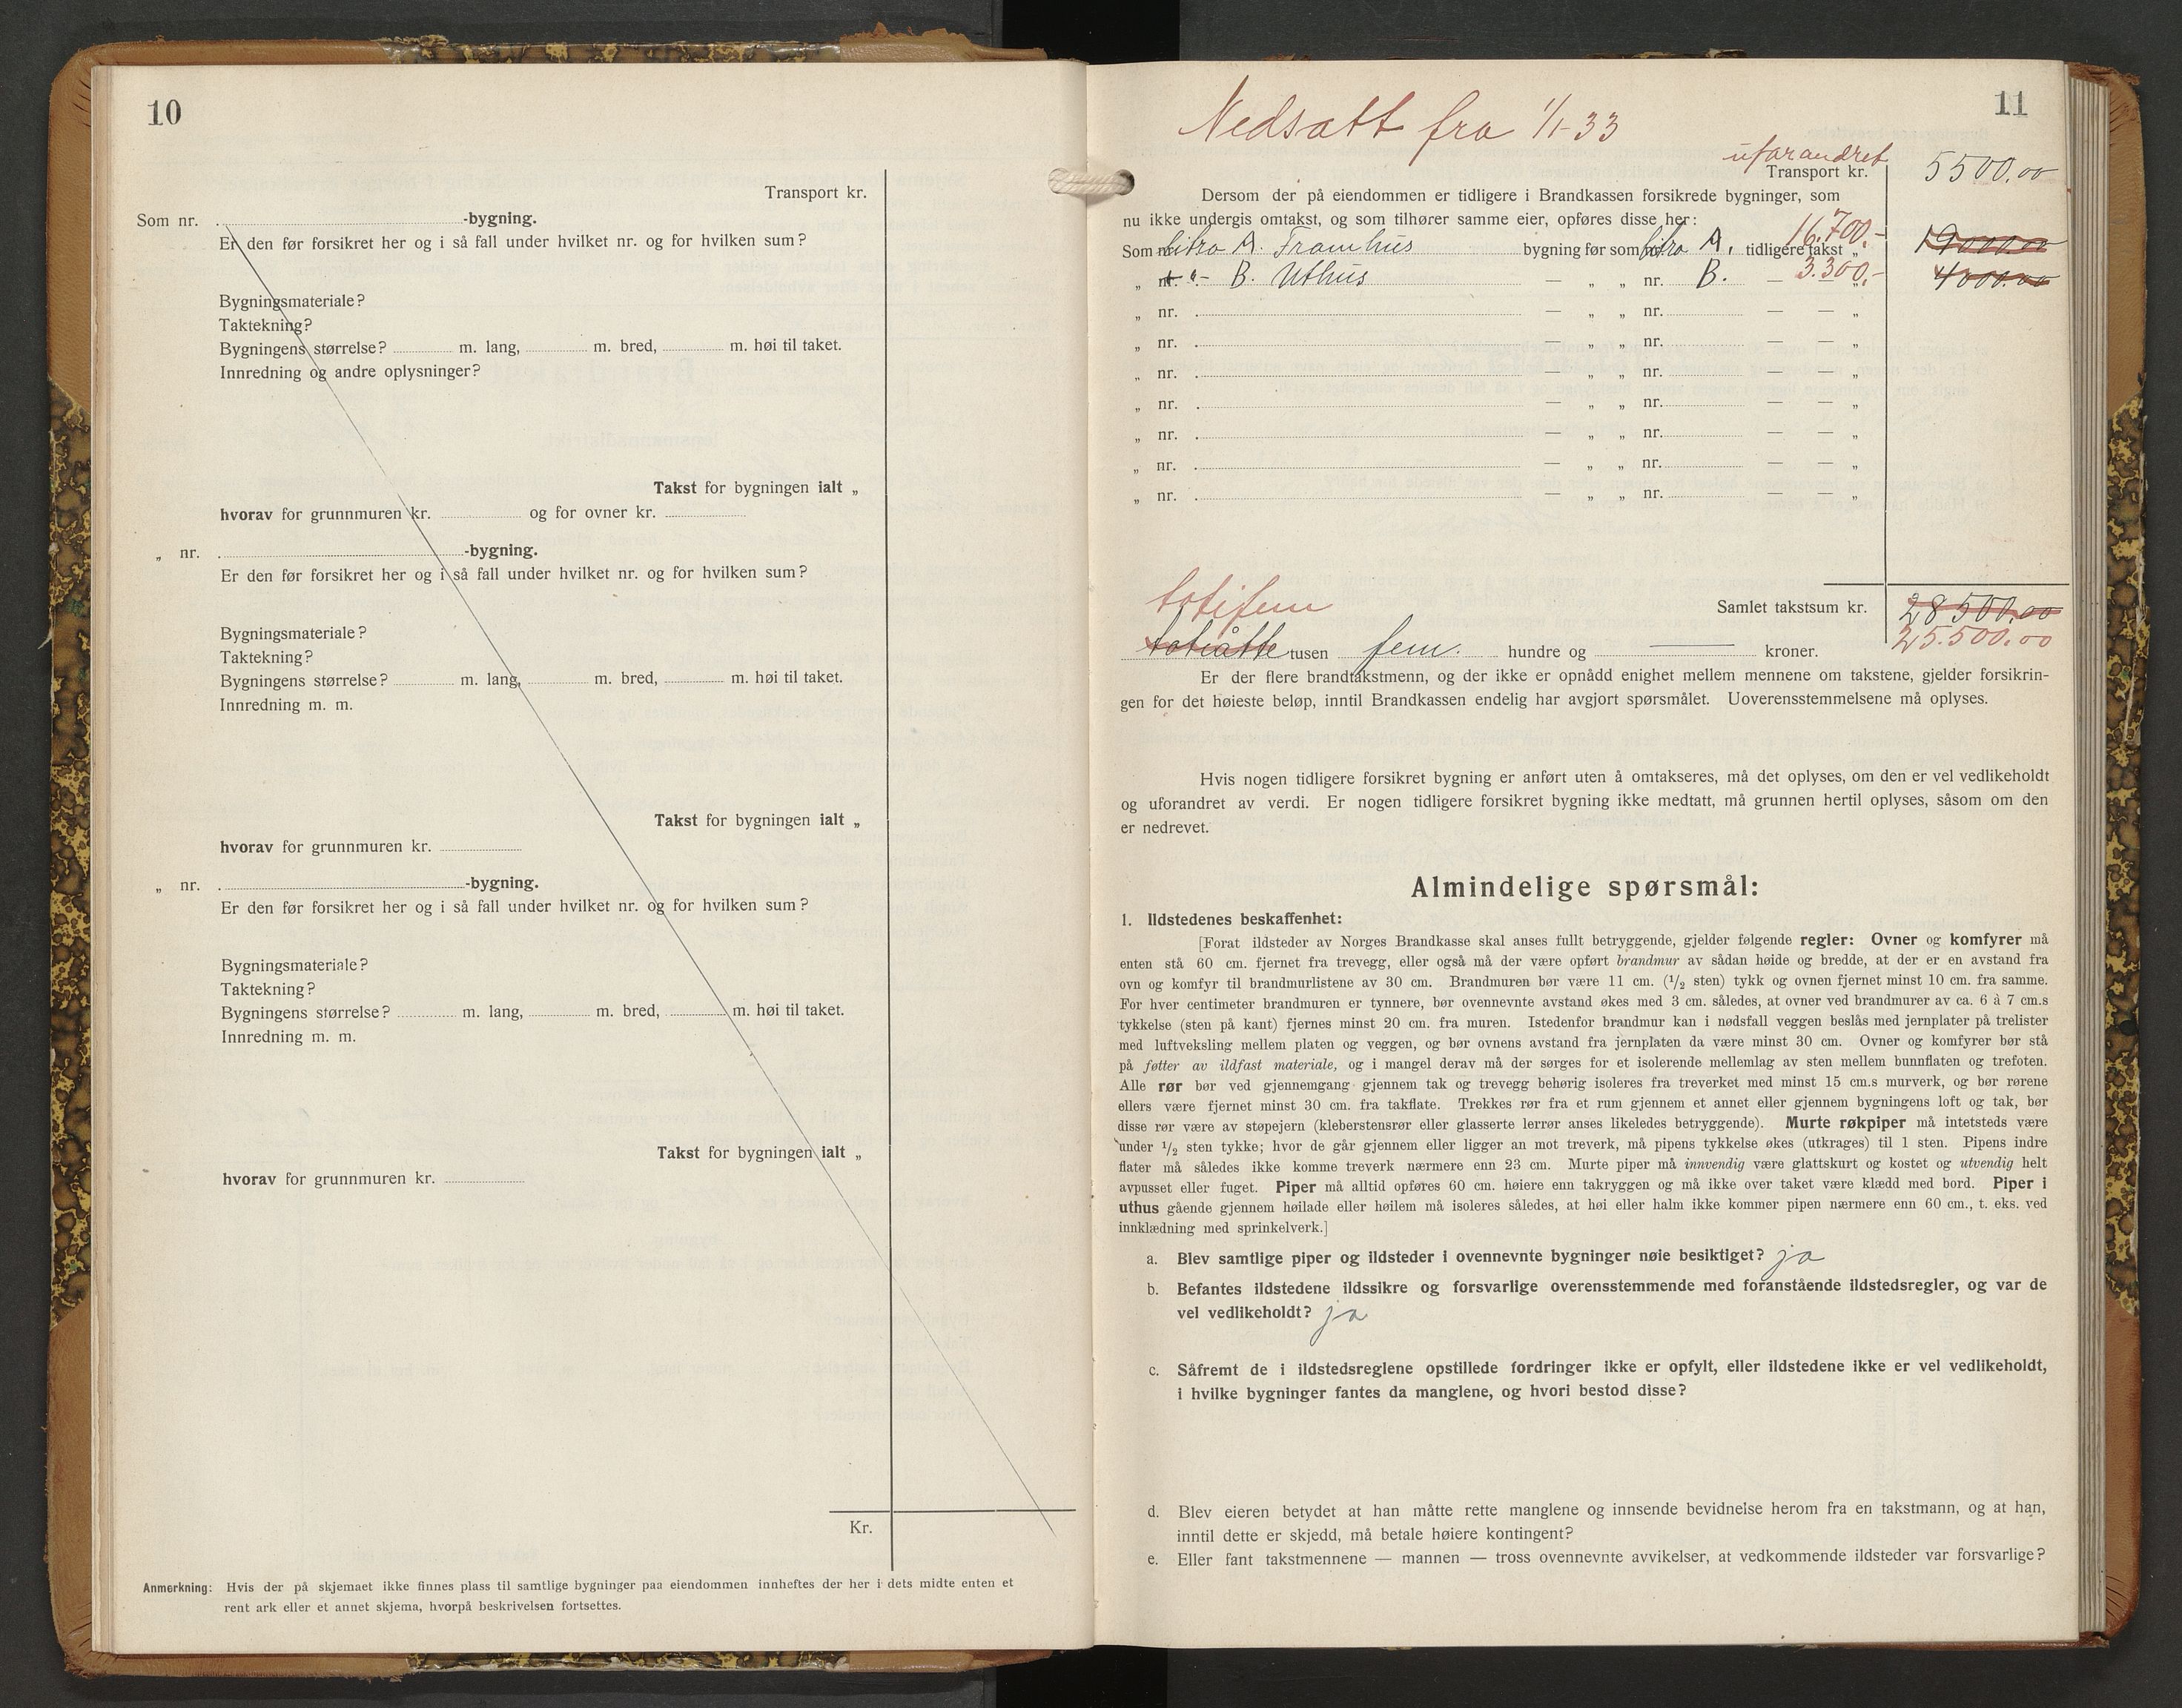 10
Transport kr.
Som nr. -bygning.
Er den før forsikret her og i så fall under hvilket nr. og for hvilken sum?
Bygningsmateriale?
Taktekning?
Bygningens størrelse? m. lang, m. bred, m. høi til taket.
Innredning og andre oplysninger?
Takst for bygningen ialt „
hvorav for grunnmuren kr. og for ovner kr.
„ nr. -bygning.
Er den før forsikret her og i så fall under hvilket nr. og for hvilken sum?
Bygningsmateriale?
Taktekning?
Bygningens størrelse? m. lang, m. bred, m. høi til taket.
Innredning m. m.
Takst for bygningen ialt „
hvorav for grunnmuren kr.
„ nr. -bygning.
Er den før forsikret her og i så fall under hvilket nr. og for hvilken sum?
Bygningsmateriale?
Taktekning?
Bygningens størrelse? m. lang, m. bred, m. høi til taket.
Innredning m. m.
Takst for bygningen ialt „
hvorav for grunnmuren kr.
Kr.
Anmerkning: Hvis der på skjemaet ikke finnes plass til samtlige bygninger paa eiendommen innheftes der her i dets midte enten et
rent ark eller et annet skjema, hvorpå beskrivelsen fortsettes.
11
Nedsatt fra 1/1-33
uforandret
Transport kr. 5500.00
Dersom der på eiendommen er tidligere i Brandkassen forsikrede bygninger, som
nu ikke undergis omtakst, og som tilhører samme eier, opføres disse her:
16.700.-
Som nr. litra A. Framhus bygning før som litra A. tidligere takst „ 19000.00
3.300.-
„ nr. -"- B. Uthus — „ „ nr. B. — — „ 4000.00
„ nr. — „ „ nr. — — „
„ nr. — „ „ nr. — — „
„ nr. — „ „ nr. — — „
„ nr. — „ „ nr. — — „
„ nr. — „ „ nr. — — „
„ nr. — „ „ nr. — — „
„ nr. — „ „ nr. — — „
totifem
Samlet takstsum kr. 28500.00
25.500.00
totiåtte tusen fem. hundre og — kroner.
Er der flere brandtakstmenn, og der ikke er opnådd enighet mellem mennene om takstene, gjelder forsikrin-
gen for det høieste beløp, inntil Brandkassen endelig har avgjort spørsmålet. Uoverensstemmelsene må oplyses.
Hvis nogen tidligere forsikret bygning er anført uten å omtakseres, må det oplyses, om den er vel vedlikeholdt
og uforandret av verdi. Er nogen tidligere forsikret bygning ikke medtatt, må grunnen hertil oplyses, såsom om den
er nedrevet.
Almindelige spørsmål:
1. Ildstedenes beskaffenhet:
[Forat ildsteder av Norges Brandkasse skal anses fullt betryggende, gjelder følgende regler: Ovner og komfyrer må
enten stå 60 cm. fjernet fra trevegg, eller også må der være opført brandmur av sådan høide og bredde, at der er en avstand fra
ovn og komfyr til brandmurlistene av 30 cm. Brandmuren bør være 11 cm. (1/2 sten) tykk og ovnen fjernet minst 10 cm. fra samme.
For hver centimeter brandmuren er tynnere, bør ovennevnte avstand økes med 3 cm. således, at ovner ved brandmurer av ca. 6 à 7 cm.s
tykkelse (sten på kant) fjernes minst 20 cm. fra muren. Istedenfor brandmur kan i nødsfall veggen beslås med jernplater på trelister
med luftveksling mellem platen og veggen, og bør ovnens avstand fra jernplaten da være minst 30 cm. Ovner og komfyrer bør stå
på føtter av ildfast materiale, og i mangel derav må der sørges for et isolerende mellemlag av sten mellem bunnflaten og trefoten.
Alle rør bør ved gjennemgang gjennem tak og trevegg behørig isoleres fra treverket med minst 15 cm.s murverk, og bør rørene
ellers være fjernet minst 30 cm. fra takflate. Trekkes rør fra et rum gjennem et annet eller gjennem bygningens loft og tak, bør
disse rør være av støpejern (kleberstensrør eller glasserte lerrør anses likeledes betryggende). Murte røkpiper må intetsteds være
under 1/2 sten tykke; hvor de går gjennem eller ligger an mot treverk, må pipens tykkelse økes (utkrages) til 1 sten. Pipens indre
flater må således ikke komme treverk nærmere enn 23 cm. Murte piper må innvendig være glattskurt og kostet og utvendig helt
avpusset eller fuget. Piper må alltid opføres 60 cm. høiere enn takryggen og må ikke over taket være klædd med bord. Piper i
uthus gående gjennem høilade eller høilem må isoleres således, at høi eller halm ikke kommer pipen nærmere enn 60 cm., t. eks. ved
innklædning med sprinkelverk.]
a. Blev samtlige piper og ildsteder i ovennevnte bygninger nøie besiktiget? ja
b. Befantes ildstedene ildssikre og forsvarlige overensstemmende med foranstående ildstedsregler, og var de
vel vedlikeholdt? ja
c. Såfremt de i ildstedsreglene opstillede fordringer ikke er opfylt, eller ildstedene ikke er vel vedlikeholdt,
i hvilke bygninger fantes da manglene, og hvori bestod disse?
d. Blev eieren betydet at han måtte rette manglene og innsende bevidnelse herom fra en takstmann, og at han,
inntil dette er skjedd, må betale høiere kontingent?
e. Eller fant takstmennene — mannen — tross ovennevnte avvikelser, at vedkommende ildsteder var forsvarlige?